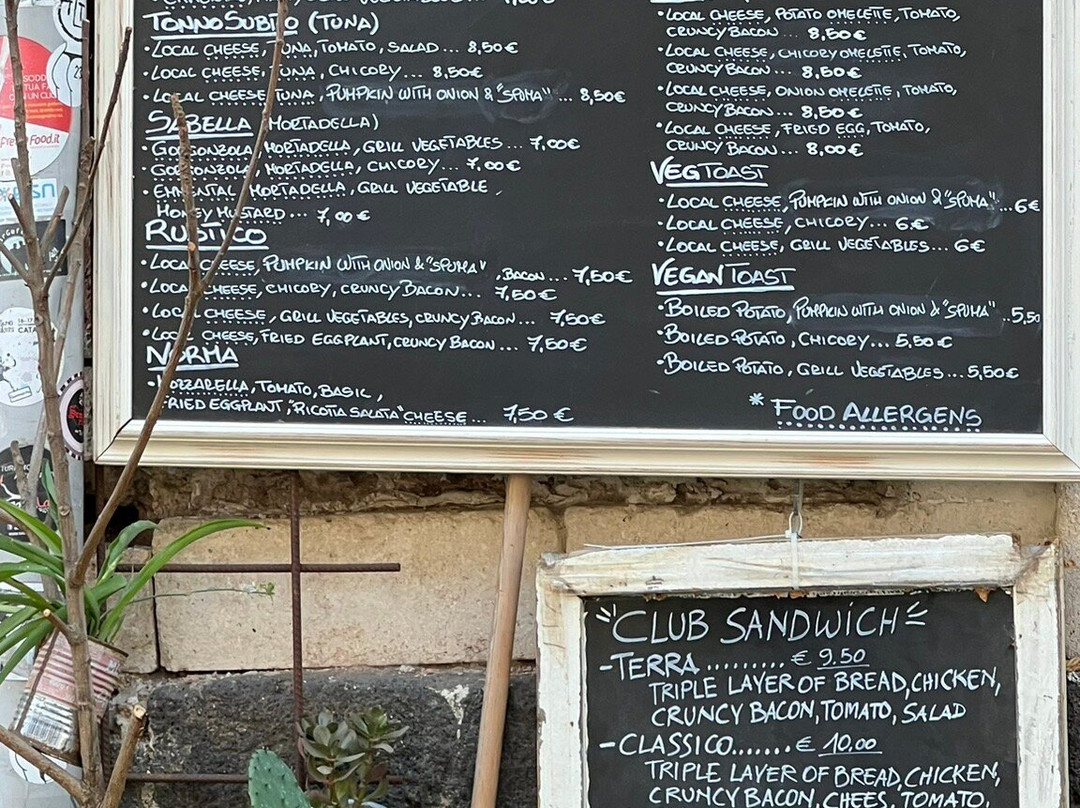 TONNO SUBITO (TUNA)
• LOCAL CHEESE, TUNA, TOMATO, SALAD ... 8,50€
• LOCAL CHEESE, TUNA, CHICORY ... 8,50€
• LOCAL CHEESE, TUNA, PUMPKIN WITH ONION & "SPUMA" ... 8,50€
SABELLA (MORTADELLA)
• GORGONZOLA, MORTADELLA, GRILL VEGETABLES ... 7,00€
• GORGONZOLA, MORTADELLA, CHICORY ... 7,00€
• EMMENTAL, MORTADELLA, GRILL VEGETABLE,
HONEY MUSTARD ... 7,00€
RUSTICO
• LOCAL CHEESE, PUMPKIN WITH ONION & "SPUMA", BACON ... 7,50€
• LOCAL CHEESE, CHICORY, CRUNCY BACON ... 7,50€
• LOCAL CHEESE, GRILL VEGETABLES, CRUNCY BACON ... 7,50€
• LOCAL CHEESE, FRIED EGGPLANT, CRUNCY BACON ... 7,50€
NORMA
• MOZZARELLA, TOMATO, BASIC,
FRIED EGGPLANT, "RICOTTA SALATA" CHEESE ... 7,50€
• LOCAL CHEESE, POTATO OMELETTE, TOMATO,
CRUNCY BACON ... 8,50€
• LOCAL CHEESE, CHICORY OMELETTE, TOMATO,
CRUNCY BACON ... 8,50€
• LOCAL CHEESE, ONION OMELETTE, TOMATO,
CRUNCY BACON ... 8,50€
• LOCAL CHEESE, FRIED EGG, TOMATO,
CRUNCY BACON ... 8,00€
VEGTOAST
• LOCAL CHEESE, PUMPKIN WITH ONION & "SPUMA" ... 6€
• LOCAL CHEESE, CHICORY ... 6€
• LOCAL CHEESE, GRILL VEGETABLES ... 6€
VEGAN TOAST
• BOILED POTATO, PUMPKIN WITH ONION & "SPUMA" ... 5,50
• BOILED POTATO, CHICORY ... 5,50€
• BOILED POTATO, GRILL VEGETABLES ... 5,50€
* FOOD ALLERGENS
"CLUB SANDWICH"
- TERRA ......... € 9.50
TRIPLE LAYER OF BREAD, CHICKEN,
CRUNCY BACON, TOMATO, SALAD
- CLASSICO ....... € 10.00
TRIPLE LAYER OF BREAD, CHICKEN,
CRUNCY BACON, CHEES, TOMATO,